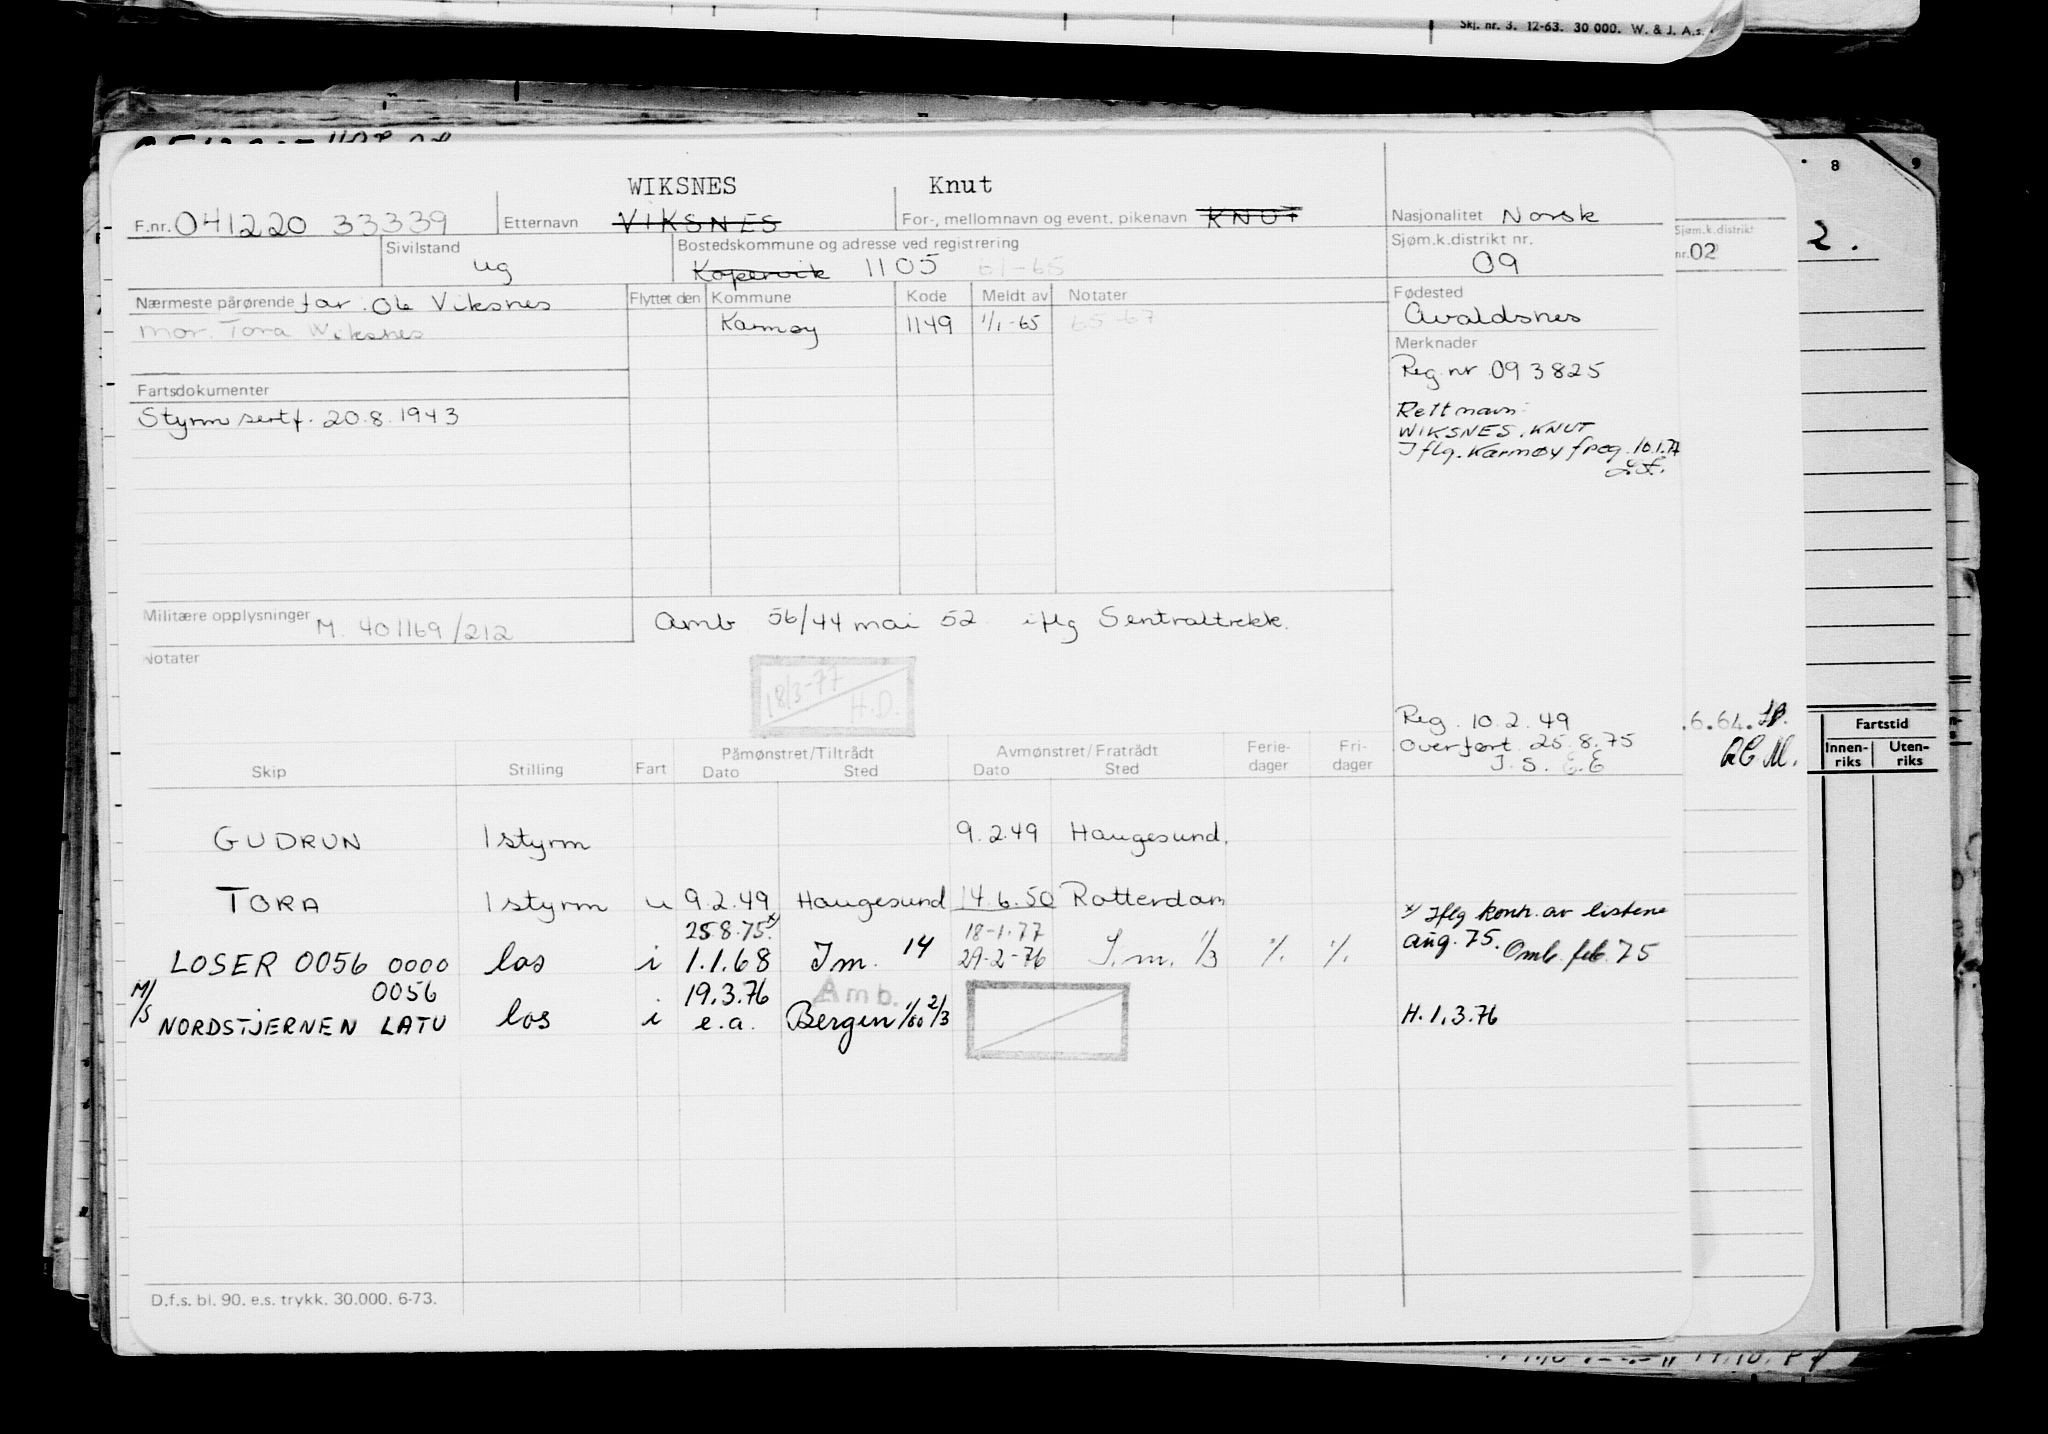 Skj. nr. 3. 12-63. 30 000. W. & J. A.s.
8 9
2.
WIKSNES Knut
F.nr. 041220 33339 Etternavn VIKSNES For-, mellomnavn og event. pikenavn KNUT Nasjonalitet Norsk
Sivilstand ug Bostedskommune og adresse ved registrering Kopervik 1105 61-65 Sjøm.k.distrikt nr. 09
Sjøm.k.distrikt nr. 02
Nærmeste pårørende far: Ole Viksnes Flyttet den Kommune Kode Meldt av Notater Fødested
mor. Tora Wiksnes Karmøy 1149 1/1-65 65-67 Avaldsnes
Merknader
Reg nr 093825
Fartsdokumenter
Styrm sertf. 20.8.1943
Rett navn
WIKSNES, KNUT
Iflg. Karmøy freg. 10.1.77
Militære opplysninger M. 401169/212 Amb 56/44 mai 52 iflg Sentraltrekk.
Notater
18/3-77 H.D.
Reg. 10.2.49
Overført 25.8.75
J.S. E.E
.6.64.
Fartstid
Innen-riks Uten-riks
Skip Stilling Fart Påmønstret/Tiltrådt Dato Sted Avmønstret/Fratrådt Dato Sted Ferie-dager Fri-dager
GUDRUN 1 styrm 9.2.49 Haugesund.
TORA 1 styrm u 9.2.49 Haugesund 14.6.50 Rotterdam
x/ Iflg kontr. av listene aug. 75. Omb. feb. 75
25.8.75 x/ 18-1.77
LOSER 0056 0000 los i 1.1.68 Im. 14 29-2-76 I.m. 1/3 % %
0056 19.3.76 Amb.
M/S NORDSTJERNEN LATU los i e.a. Bergen 1/60 2/3 H.1.3.76
D.f.s. bl. 90. e.s. trykk. 30.000. 6-73.